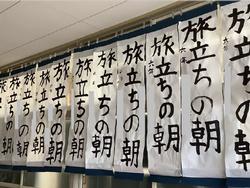 旅立ちの朝
六年
旅立ちの朝
六年
旅立ちの朝
六年
旅立ちの朝
六年
旅立ちの朝
旅立ちの朝
旅立ちの朝
旅立ちの朝
旅立ちの朝